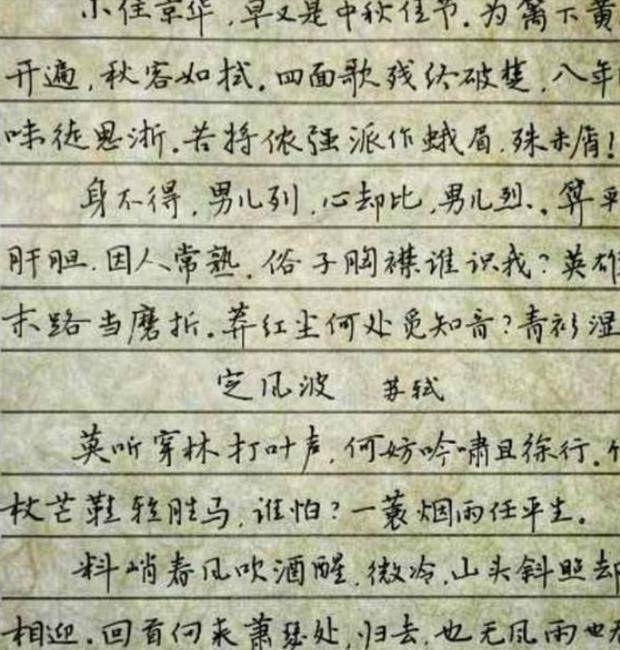 小住京华,早又是中秋佳节.为篱下黄
开遍,秋容如拭.四面歌残终破楚,八年
味徒思浙.苦将侬强派作蛾眉,殊未屑!
身不得,男儿列,心却比,男儿烈..算平
肝胆.因人常熟.俗子胸襟谁识我?英雄
末路当磨折.莽红尘何处觅知音?青衫湿
定风波 苏轼
莫听穿林打叶声,何妨吟啸且徐行.
杖芒鞋轻胜马,谁怕?一蓑烟雨任平生。
料峭春风吹酒醒,微冷,山头斜照却
相迎.回首向来萧瑟处,归去,也无风雨也